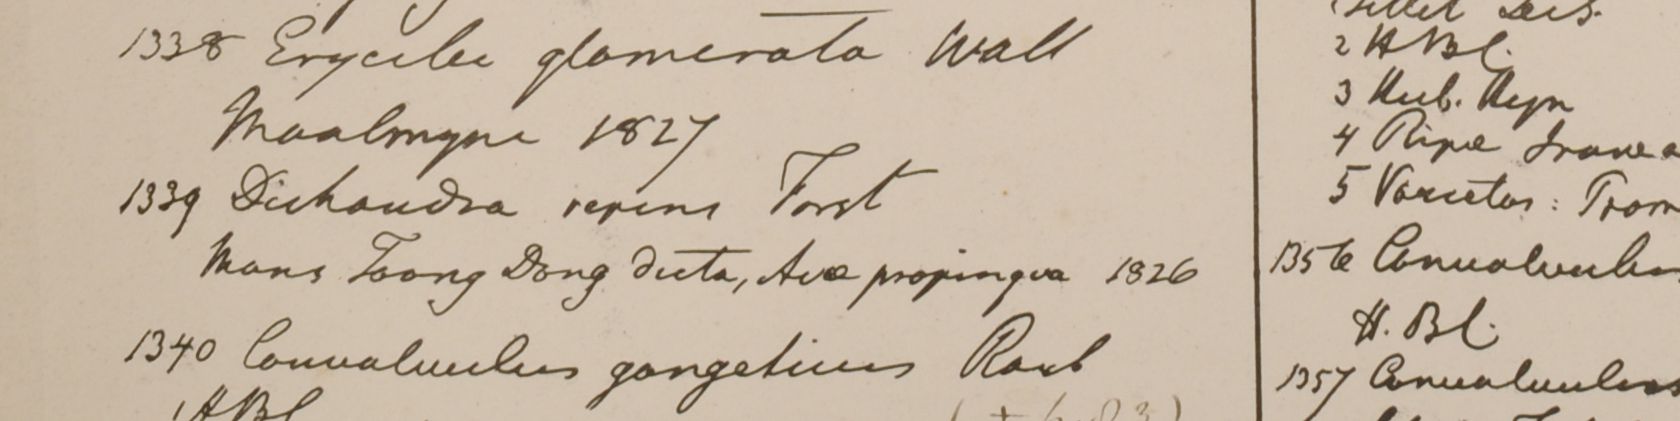 1338 Erycibe glomerata Wall
Moalmyne 1827
1339 Dichondra repens Forst
Mons Toong Dong dicta, Avæ propinqva 1826
1340 Convolvulus gangeticus Roxb
HBl
2 H Bl.
3 Herb. Heyn
4 Ripæ
5 Varietas:
1356 Convolvulus
H. Bl.
1357 Convolvulus